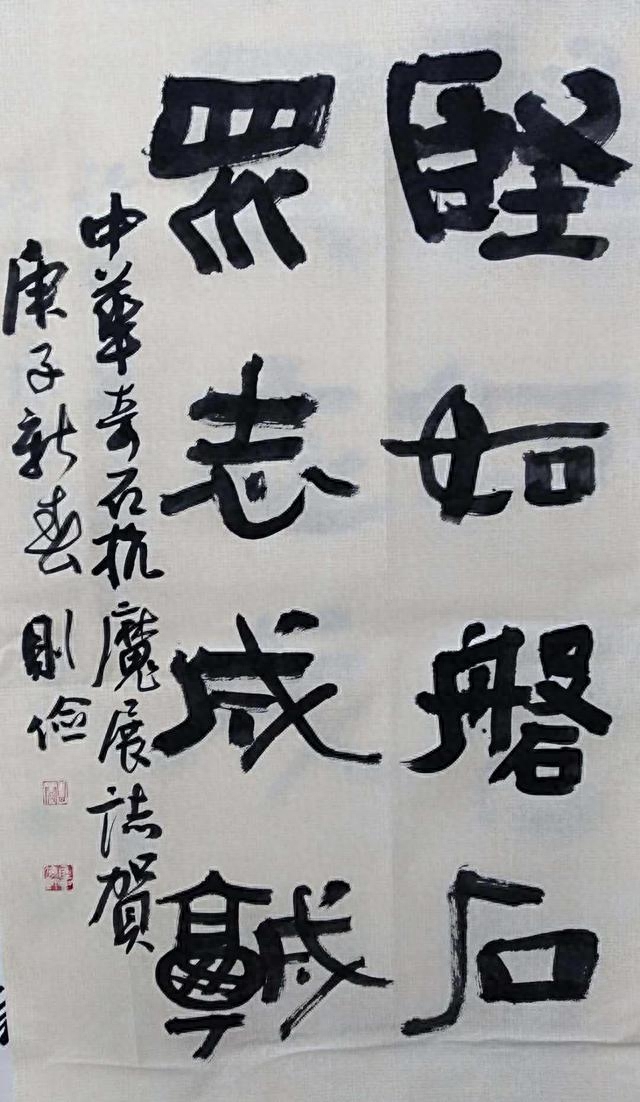 堅如磐石
眾志成城
中華奇石抗魔展誌賀
庚子新春 則儉